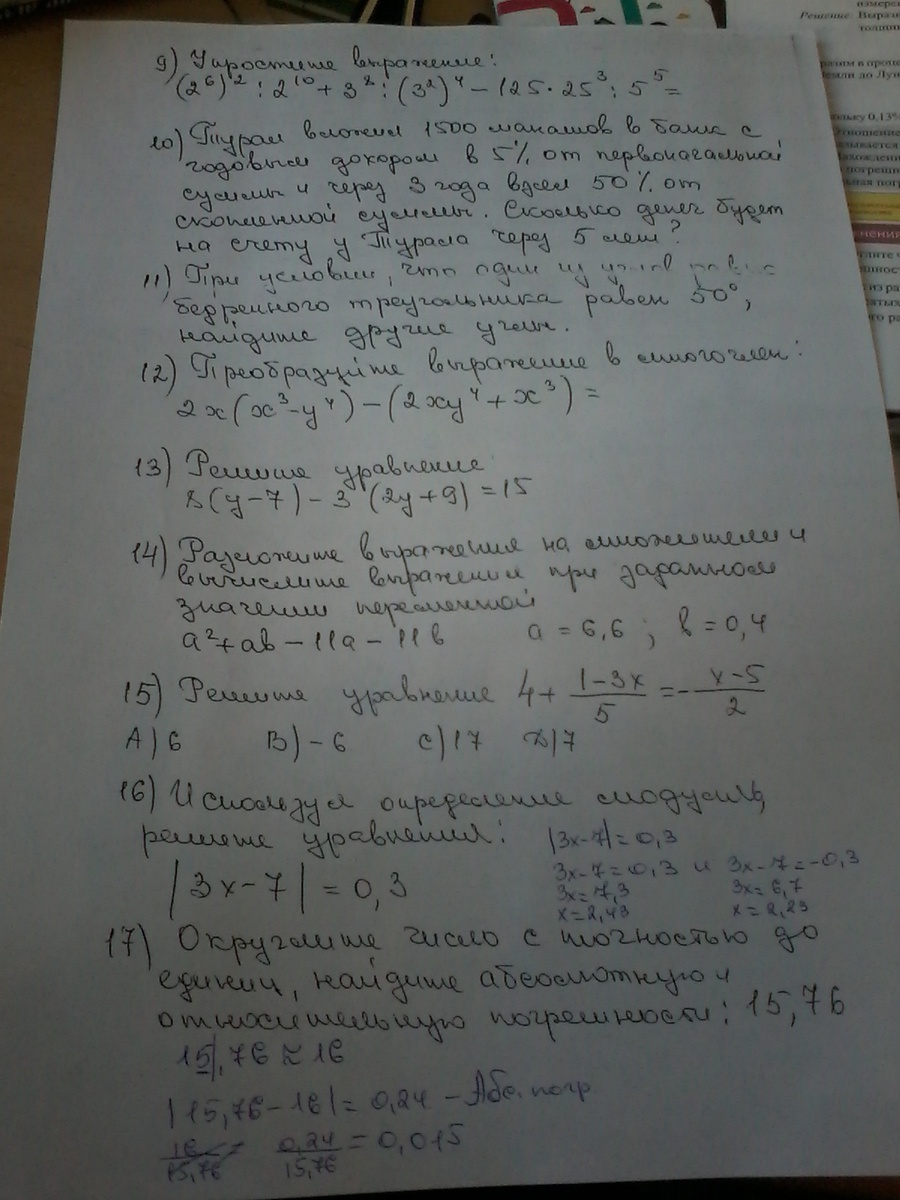 9) Упростите выражение:
(2⁶)² : 2¹⁰ + 3² : (3²)⁴ – 125 · 25³ : 5⁵ =
10) Турал вложил 1500 манатов в банк с
годовым доходом в 5% от первоначальной
суммы и через 3 года взял 50% от
скопленной суммы. Сколько денег будет
на счету у Турала через 5 лет?
11) При условии, что один из углов
бедренного треугольника равен 50°,
найдите другие углы.
12) Преобразуйте выражение в многочлен:
2x(x³-y⁴) – (2xy⁴ + x³) =
13) Решите уравнение
8(y-7) – 3 (2y+9) = 15
14) Разложите выражения на множители и
вычислите выражения при заданном
значении переменной
a²+ab – 11a – 11b a = 6,6 ; b = 0,4
15) Решите уравнение 4 + (1-3x)/5 = -(x-5)/2
A) 6 B) -6 C) 17 D) 7
16) Используя определение модуля,
решите уравнения:
|3x-7| = 0,3
|3x-7| = 0,3
3x-7=0,3 и 3x-7=-0,3
3x=7,3 3x=6,7
x=2,43 x=2,23
17) Округлите число с точностью до
единиц, найдите абсолютную и
относительную погрешности: 15,76
15,76 ≈ 16
|15,76-16| = 0,24 – Абс. погр
16/15,76 0,24/15,76 = 0,015
Решение
Выра
толщин
в
до Лун
0,13%